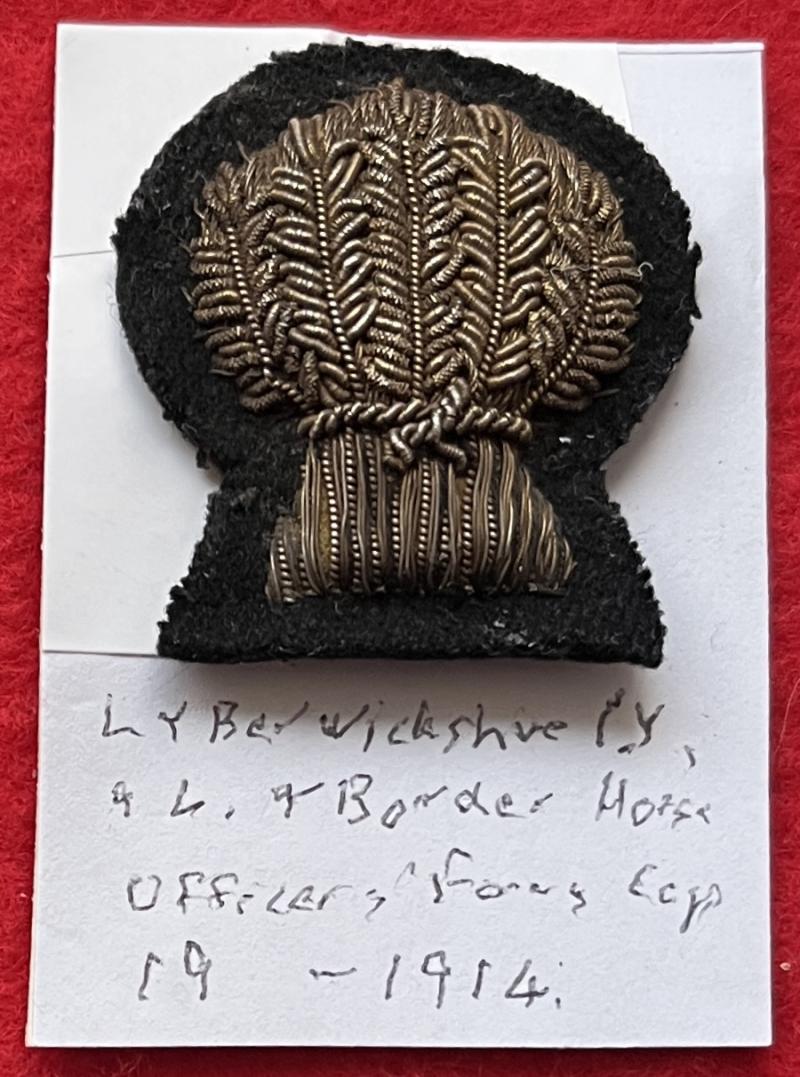 L & Berwickshire I.Y,
& L. & Border Horse
Officers' Forag Cap
19 - 1914.